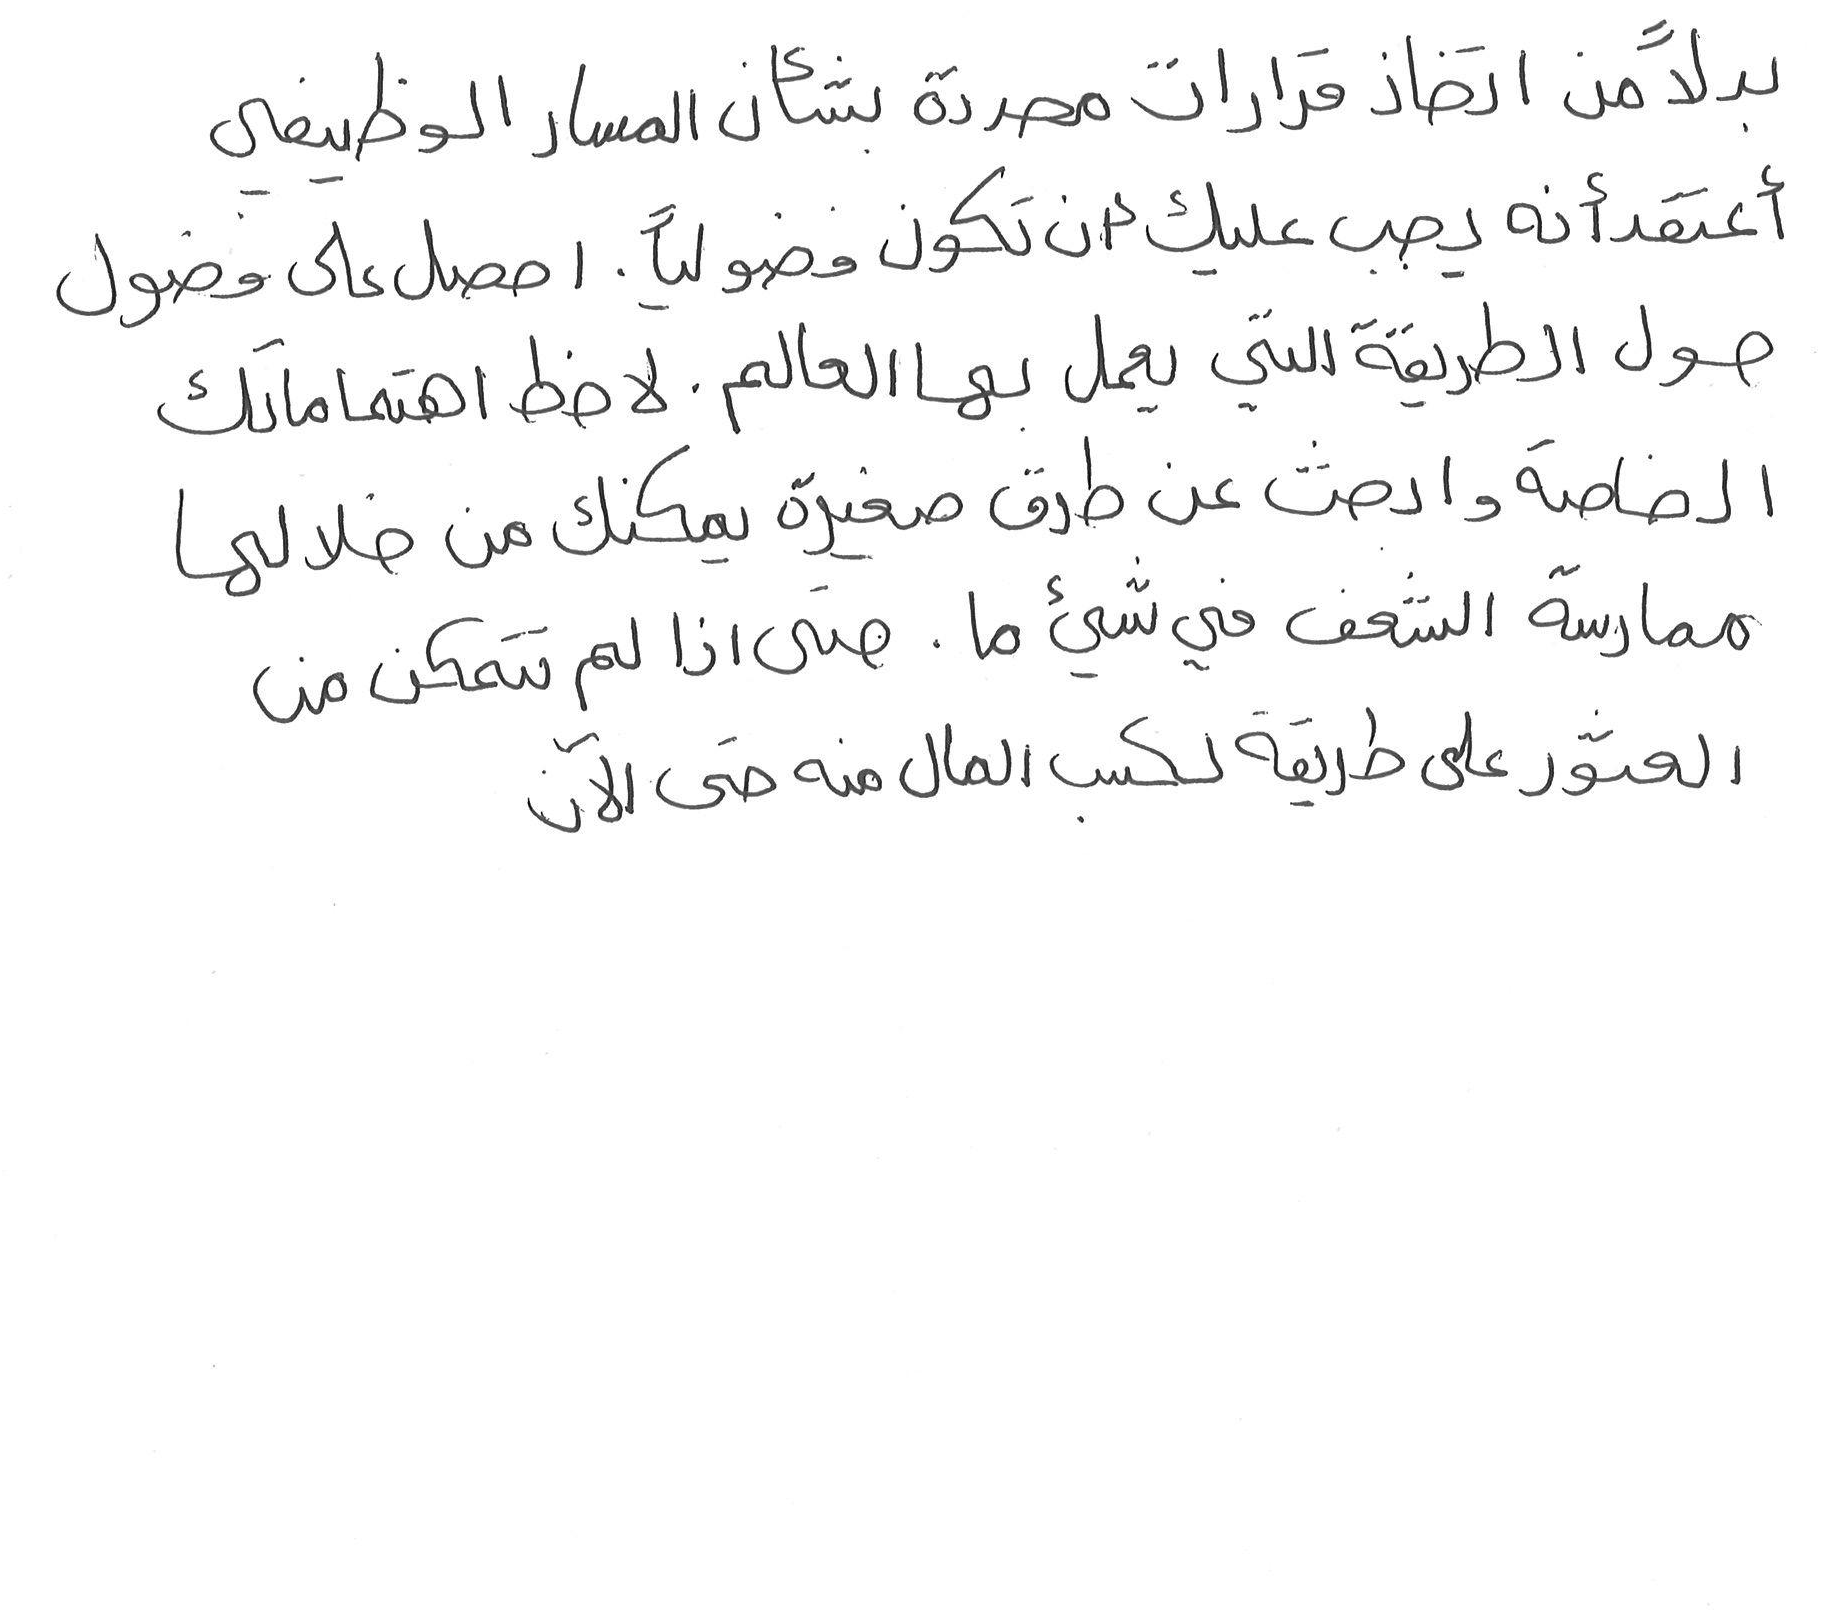 بدلاً من اتخاذ قرارات محددة بشأن المسار الوظيفي
أعتقد أنه يجب عليك أن تكون فضولياً. احصل على فضول
حول الطريقة التي يعمل بها العالم. لاحظ اهتماماتك
الخاصة وابحث عن طرق صغيرة يمكنك من خلالها
ممارسة الشغف في شيئ ما. حتى اذا لم تتمكن من
العثور على طريقة لكسب المال منه حتى الآن